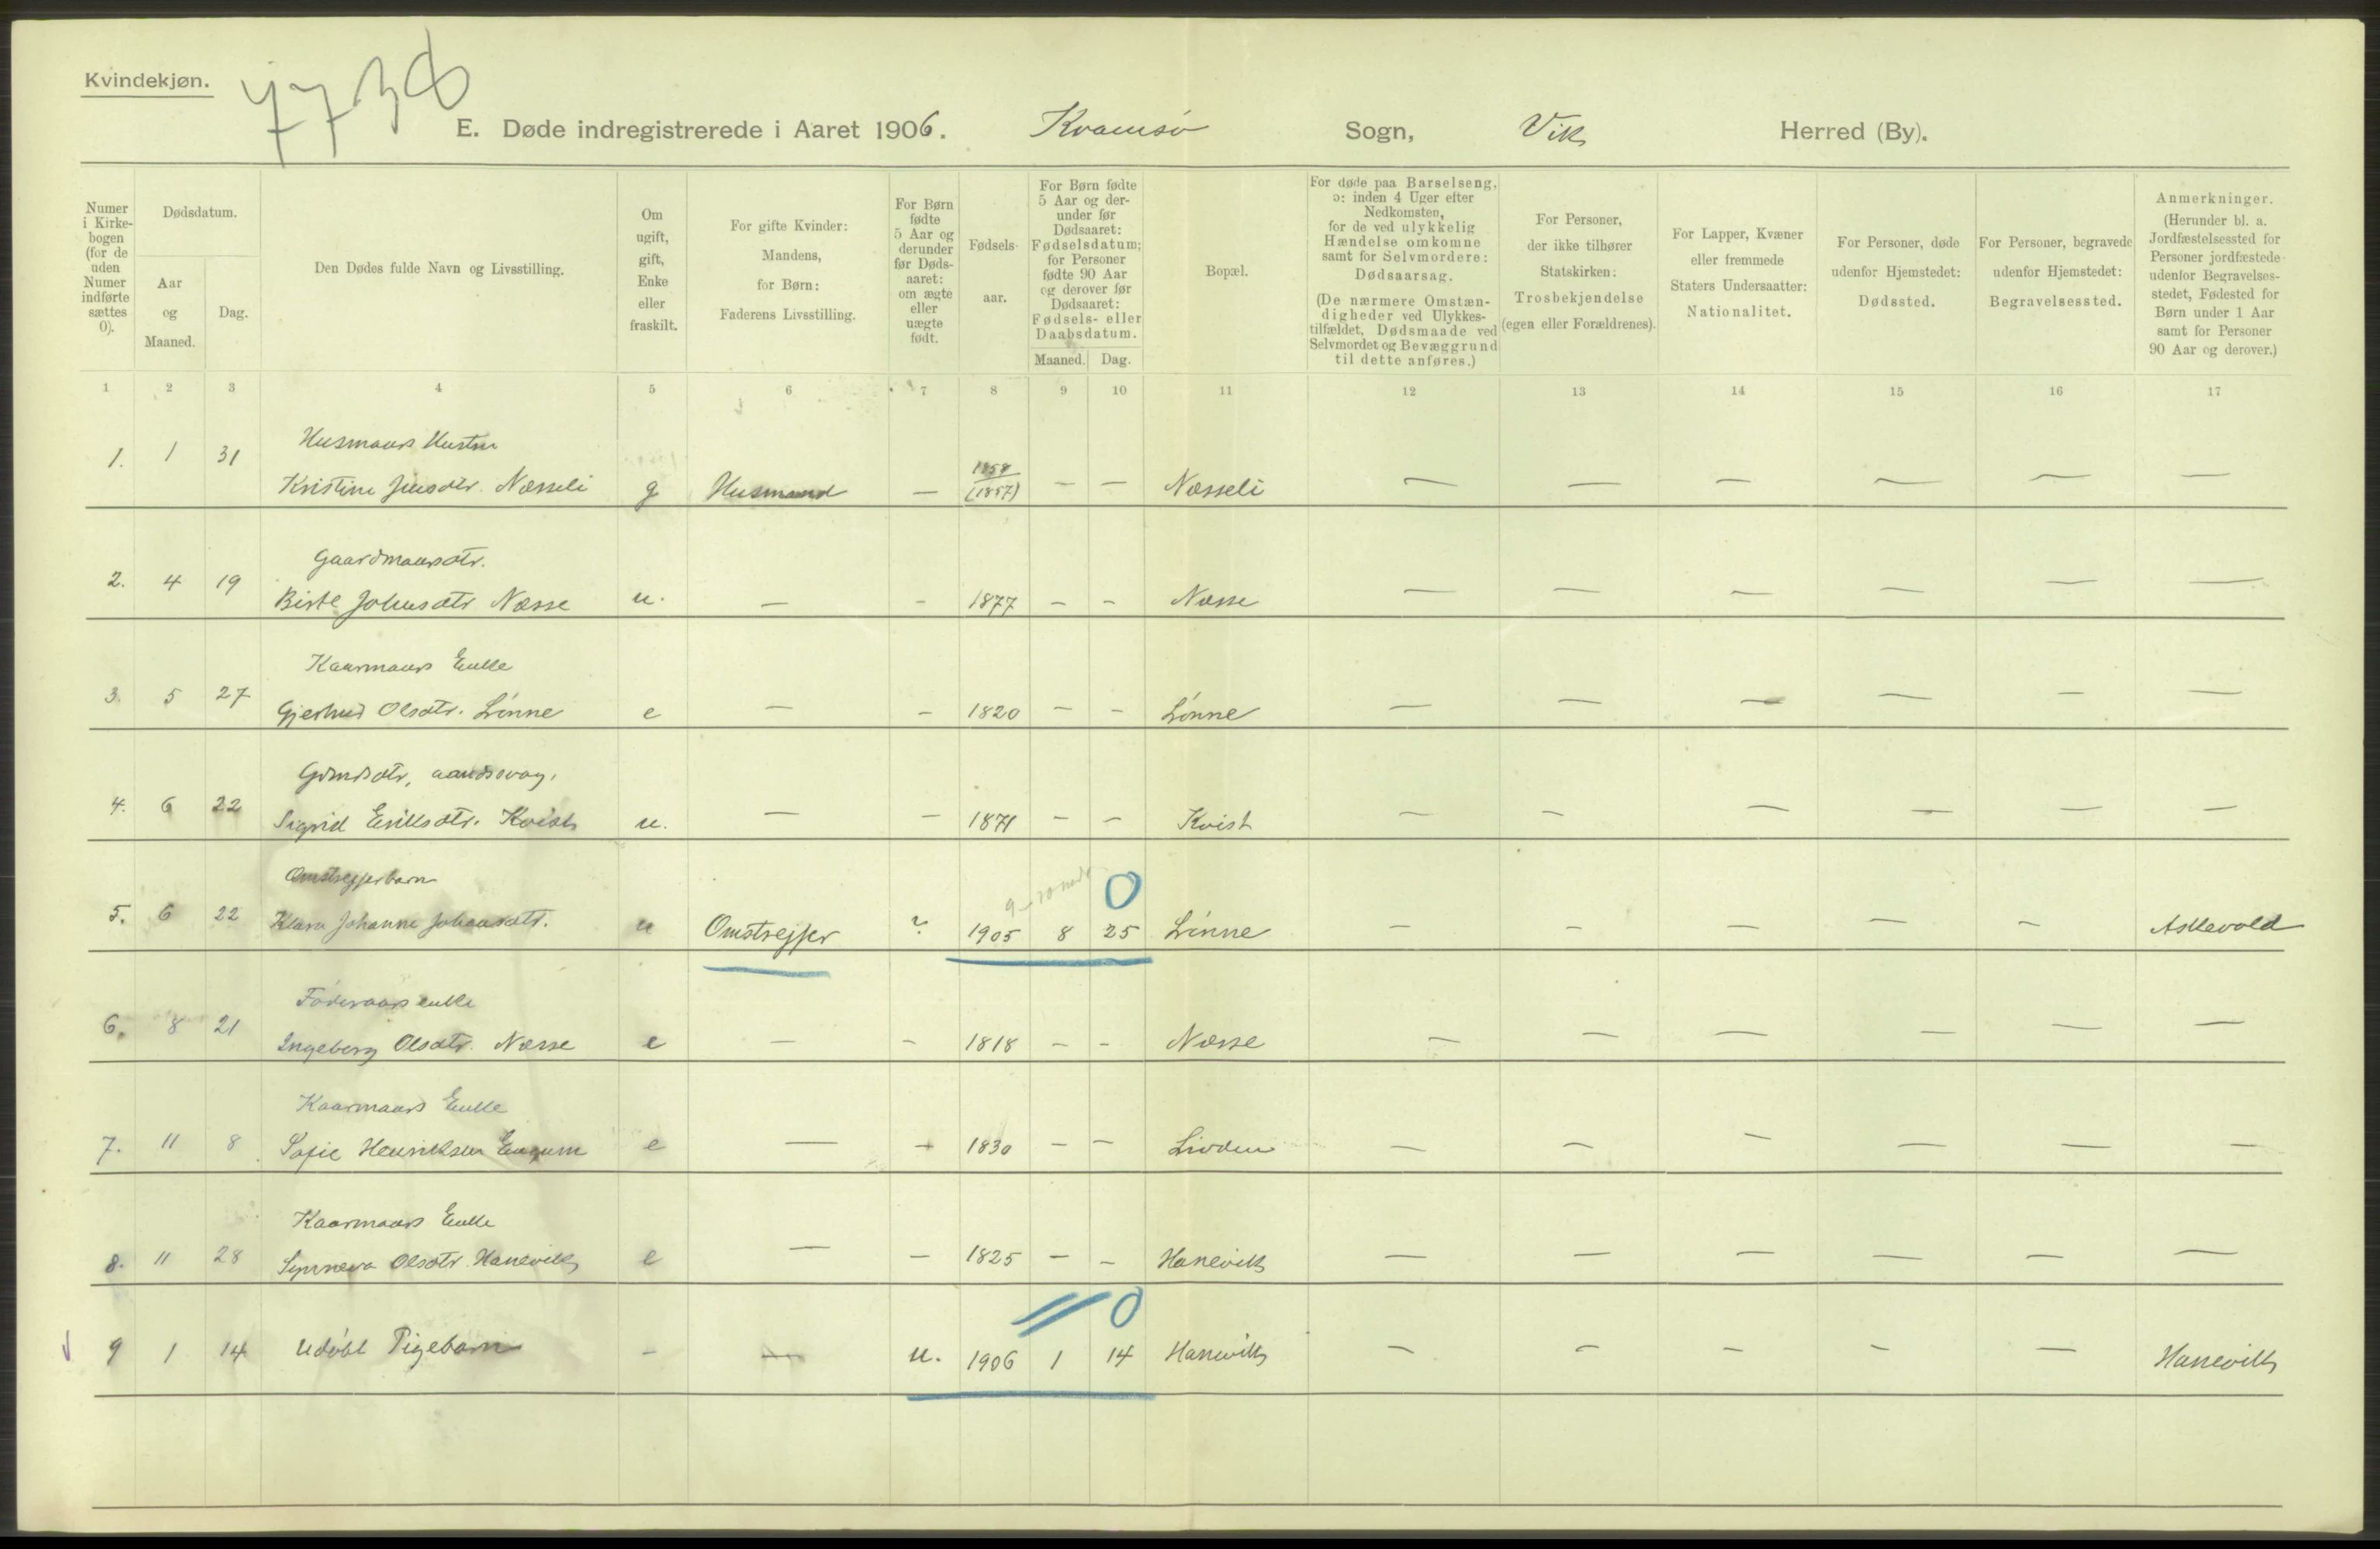 Kvindekjøn.
7738
E. Døde indregistrerede i Aaret 1906. Kvamsø Sogn, Vik Herred (By).
Numer i Kirke-bogen (for de uden Numer indførte sættes 0).
Dødsdatum.
Aar og Maaned.
Dag.
Den Dødes fulde Navn og Livsstilling.
Om ugift, gift, Enke eller fraskilt.
For gifte Kvinder: Mandens, for Børn: Faderens Livsstilling.
For Børn fødte 5 Aar og derunder før Døds-aaret: om ægte eller uægte født.
Fødsels-aar.
For Børn fødte 5 Aar og der-under før Dødsaaret: Fødselsdatum; for Personer fødte 90 Aar og derover før Dødsaaret: Fødsels- eller Daabsdatum.
Maaned. Dag.
Bopæl.
For døde paa Barselseng, ɔ: inden 4 Uger efter Nedkomsten, for de ved ulykkelig Hændelse omkomne samt for Selvmordere: Dødsaarsag.
(De nærmere Omstæn-digheder ved Ulykkes-tilfældet, Dødsmaade ved Selvmordet og Bevæggrund til dette anføres.)
For Personer, der ikke tilhører Statskirken: Trosbekjendelse (egen eller Forældrenes).
For Lapper, Kvæner eller fremmede Staters Undersaatter: Nationalitet.
For Personer, døde udenfor Hjemstedet: Dødssted.
For Personer, begravede udenfor Hjemstedet: Begravelsessted.
Anmerkninger. (Herunder bl. a. Jordfæstelsessted for Personer jordfæstede udenfor Begravelses-stedet, Fødested for Børn under 1 Aar samt for Personer 90 Aar og derover.)
1 2 3 4 5 6 7 8 9 10 11 12 13 14 15 16 17
Husmans Hustru
1. 1 31 Kristine Jensdtr. Næsseli g Husmand — 1858 (1857) — — Næsseli — — — — — —
Gaardmansdtr.
2. 4 19 Birte Johnsdtr Næsse u. — — 1877 — — Næsse — — — — — —
Kaarmans Enke
3. 5 27 Gjertrud Olsdtr. Lønne e — — 1820 — — Lønne — — — — — —
Grmdsdtr, aandssvag,
4. 6 22 Sigrid Eriksdtr. Kvist u. — — 1871 — — Kvist — — — — — —
Omstreiferbarn
9-10 mdr 0
5. 6 22 Klara Johanne Johansdtr. u Omstreifer ? 1905 8 25 Lønne — — — — — Askevold
Føderaads enke
6. 8 21 Ingeborg Olsdtr. Næsse e — — 1818 — — Næsse — — — — — —
Kaarmans Enke
7. 11 8 Sofie Henriksen Engum e — — 1830 — — — — — — — —
Kaarmans Enke
8. 11 28 Synneva Olsdtr. Hanevik e — — 1825 — — Hanevik — — — — — —
0
9 1 14 Udøbt Pigebarn — — u. 1906 1 14 Hanevik — — — — — Hanevik